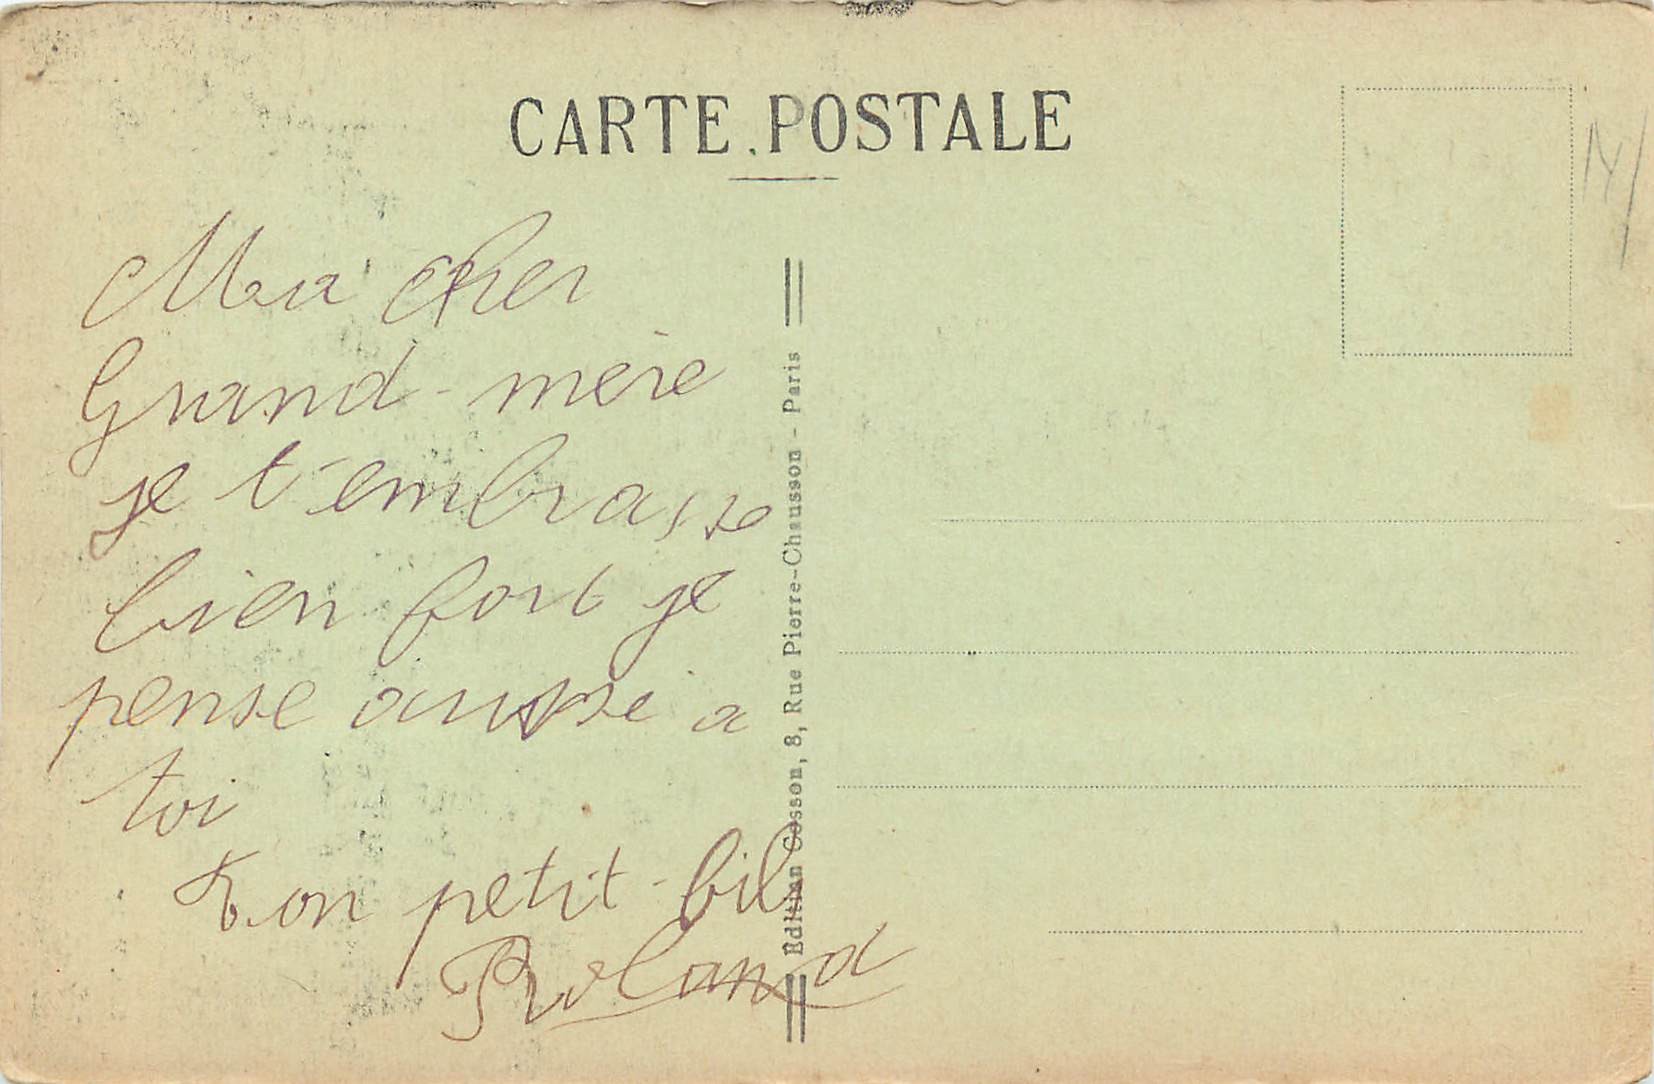 CARTE POSTALE
Ma cher
Grand-mère
je t'embrasse
bien fort je
pense aussi a
toi
Ton petit-fils
Roland
Edition Cosson, 8, Rue Pierre-Chausson - Paris